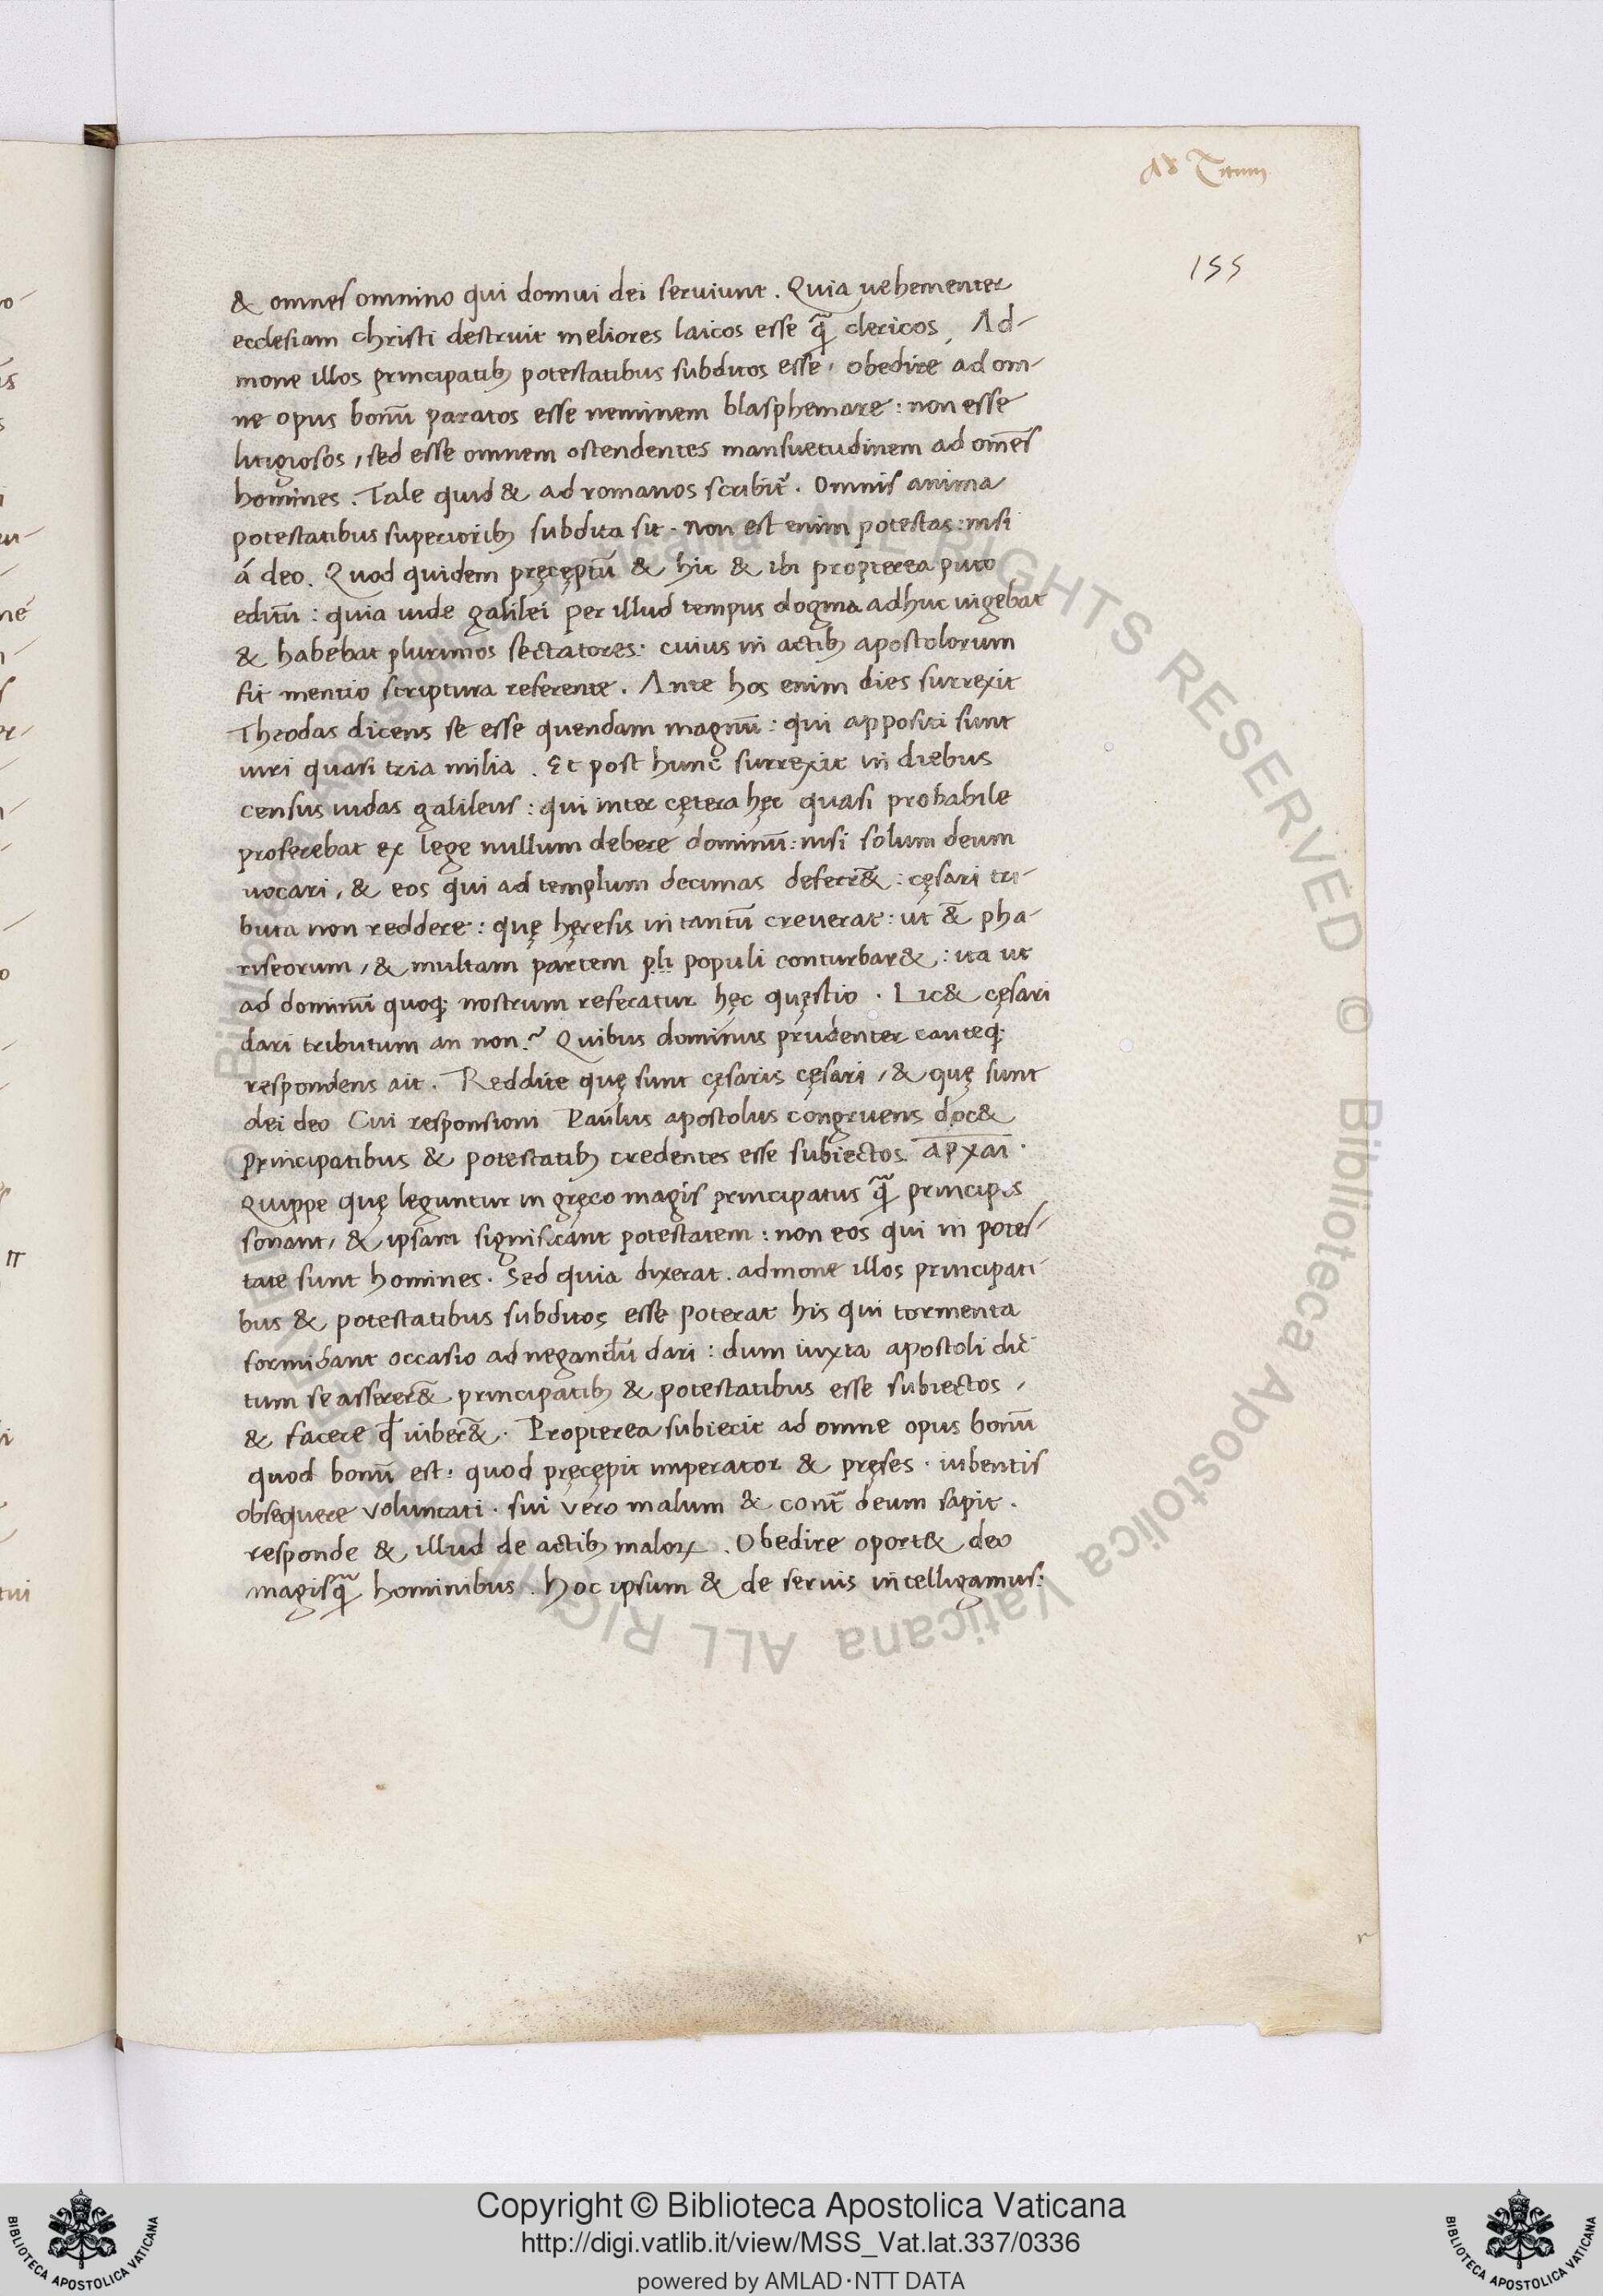 Ad Titum
155
& omnes omnino qui domui dei seruiunt. Quia uehementer
ecclesiam christi destruit meliores laicos esse q̃ clericos, Ad-
mone illos principatib; potestatibus subditos esse, obedire ad om-
ne opus bonũ paratos esse neminem blasphemare: non esse
litigiosos, sed esse omnem ostendentes mansuetudinem ad om̃es
homines. Tale quid & ad romanos scribit̃. Omnis anima
potestatibus superiorib; subdita sit. non est enim potestas: nisi
á deo. Quod quidem pręcęptũ & hic & ibi propterea puto
editũ: quia iude galilei per illud tempus dogma adhuc uigebat
& habebat plurimos sectatores: cuius in actib; apostolorum
fit mentio scriptura referente. Ante hos enim dies surrexit
Theodas dicens se esse quendam magnũ: qui appositi sunt
uiri quasi tria milia. Et post hunc surrexit in diebus
census iudas galileus: qui inter cętera hęc quasi probabile
proferebat ex lege nullum debere dominũ: nisi solum deum
uocari, & eos qui ad templum decimas deferr&̃: cęsari tri-
buta non reddere: quę hęresis in tantũ creuerat: ut &̃ pha-
riseorum, & multam partem pli populi conturbar&: ita ut
ad dominũ quoq; nostrum referatur hęc quęstio. Lic& cęsari
dari tributum an non? Quibus dominus prudenter cauteq;
respondens ait. Reddite quę sunt cęsaris cęsari, & quę sunt
dei deo Cui responsioni Paulus apostolus congruens doc&
principatibus & potestatib; credentes esse subiectos. αρχαι.
Quippe quę leguntur in gręco magis principatus q̃ principes
sonant, & ipsam significant potestatem: non eos qui in potes-
tate sunt homines. Sed quia dixerat. admone illos principati-
bus & potestatibus subditos esse poterat his qui tormenta
formidant occasio ad negandũ dari: dum iuxta apostoli dic̃
tum se asserer&̃ principatib; & potestatibus esse subiectos,
& facere qđ iuber&̃. Propterea subiecit ad omne opus bonũ
quod bonũ est: quod pręcępit imperator & pręses. iubentis
obsequere voluntati. sui vero malum & cont̃ deum sapit.
responde & illud de actib; maloꝝ. Obedire oport& deo
magisq̃ hominibus. hoc ipsum & de seruis intelligamus:
Copyright © Biblioteca Apostolica Vaticana
http://digi.vatlib.it/view/MSS_Vat.lat.337/0336
powered by AMLAD·NTT DATA